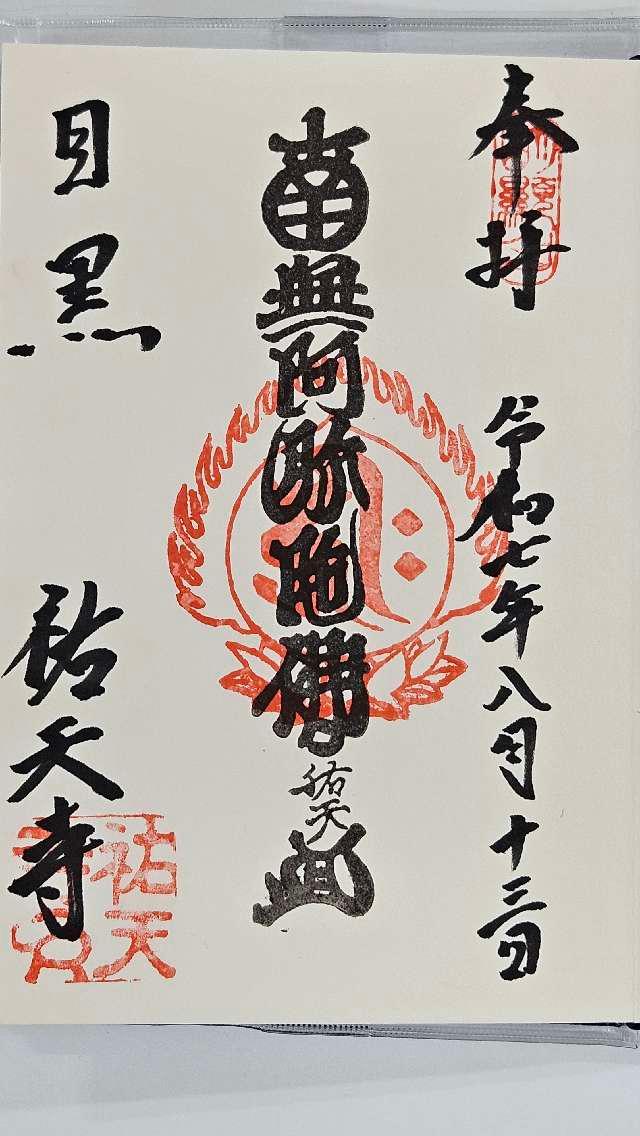 奉拝
令和七年八月十三日
南無阿弥陀佛
祐天
目黒
祐天寺
祐天